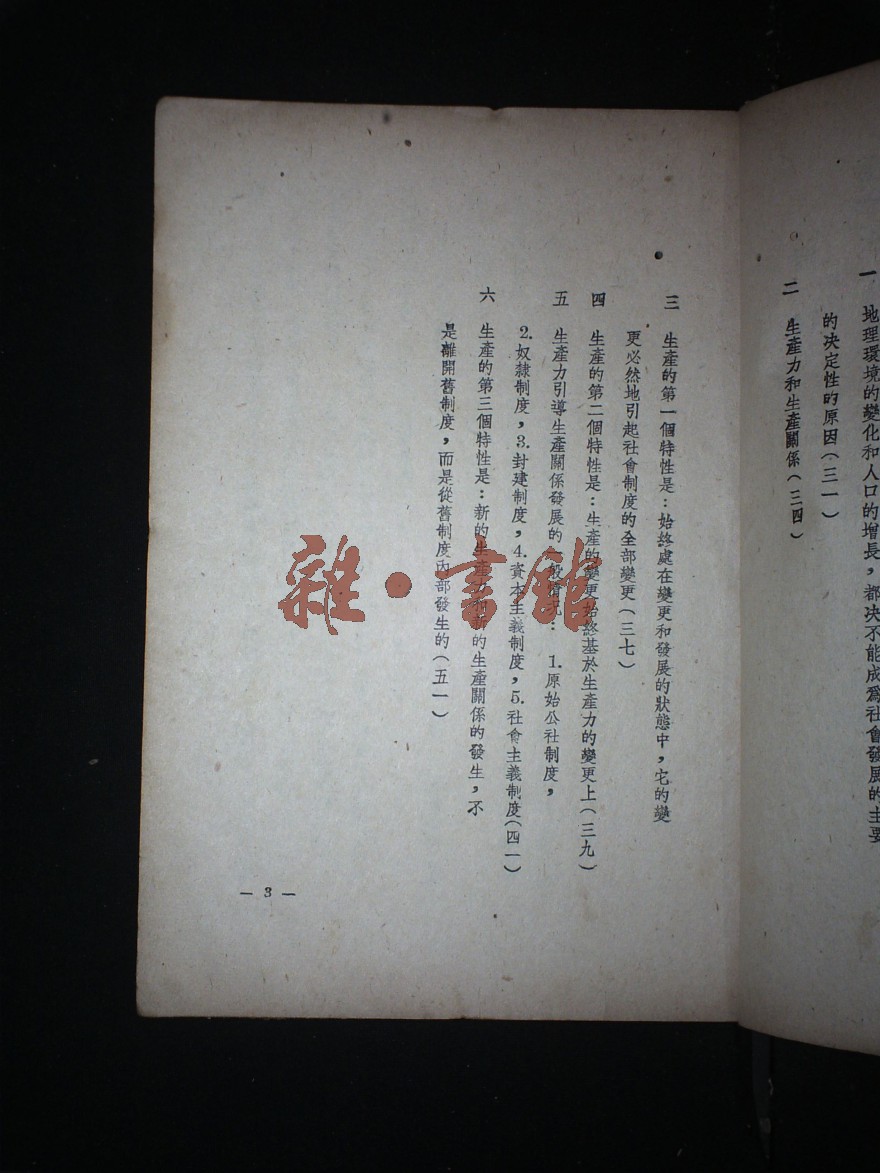 一　地理環境的變化和人口的增長，都决不能成爲社會發展的主要
的决定性的原因（三一）
二　生產力和生產關係（三四）
三　生產的第一個特性是：始終處在變更和發展的狀態中，它的變
更必然地引起社會制度的全部變更（三七）
四　生產的第二個特性是：生產的變更始終基於生產力的變更上（三九）
五　生產力引導生產關係發展的一般情况：　1.原始公社制度，
2.奴隸制度，3.封建制度，4.資本主義制度，5.社會主義制度（四一）
六　生產的第三個特性是：新的生產力和新的生產關係的發生，不
是離開舊制度，而是從舊制度內部發生的（五一）
— 3 —
雜·書館